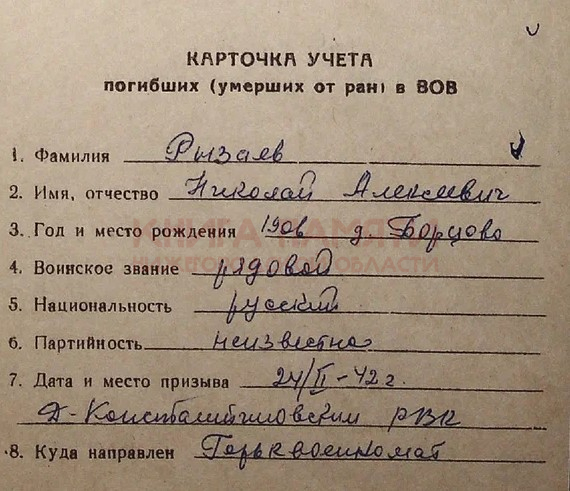 КАРТОЧКА УЧЕТА
погибших (умерших от ран) в ВОВ
1. Фамилия Рызаев
2. Имя, отчество Николай Алексеевич
3. Год и место рождения 1906 д. Борцово
КНИГА ПАМЯТИ
НИЖЕГОРОДСКОЙ ОБЛАСТИ
4. Воинское звание рядовой
5. Национальность русский
6. Партийность неизвестно
7. Дата и место призыва 24/II-42 г.
Д-Константиновским РВК
8. Куда направлен Горьквоенкомат